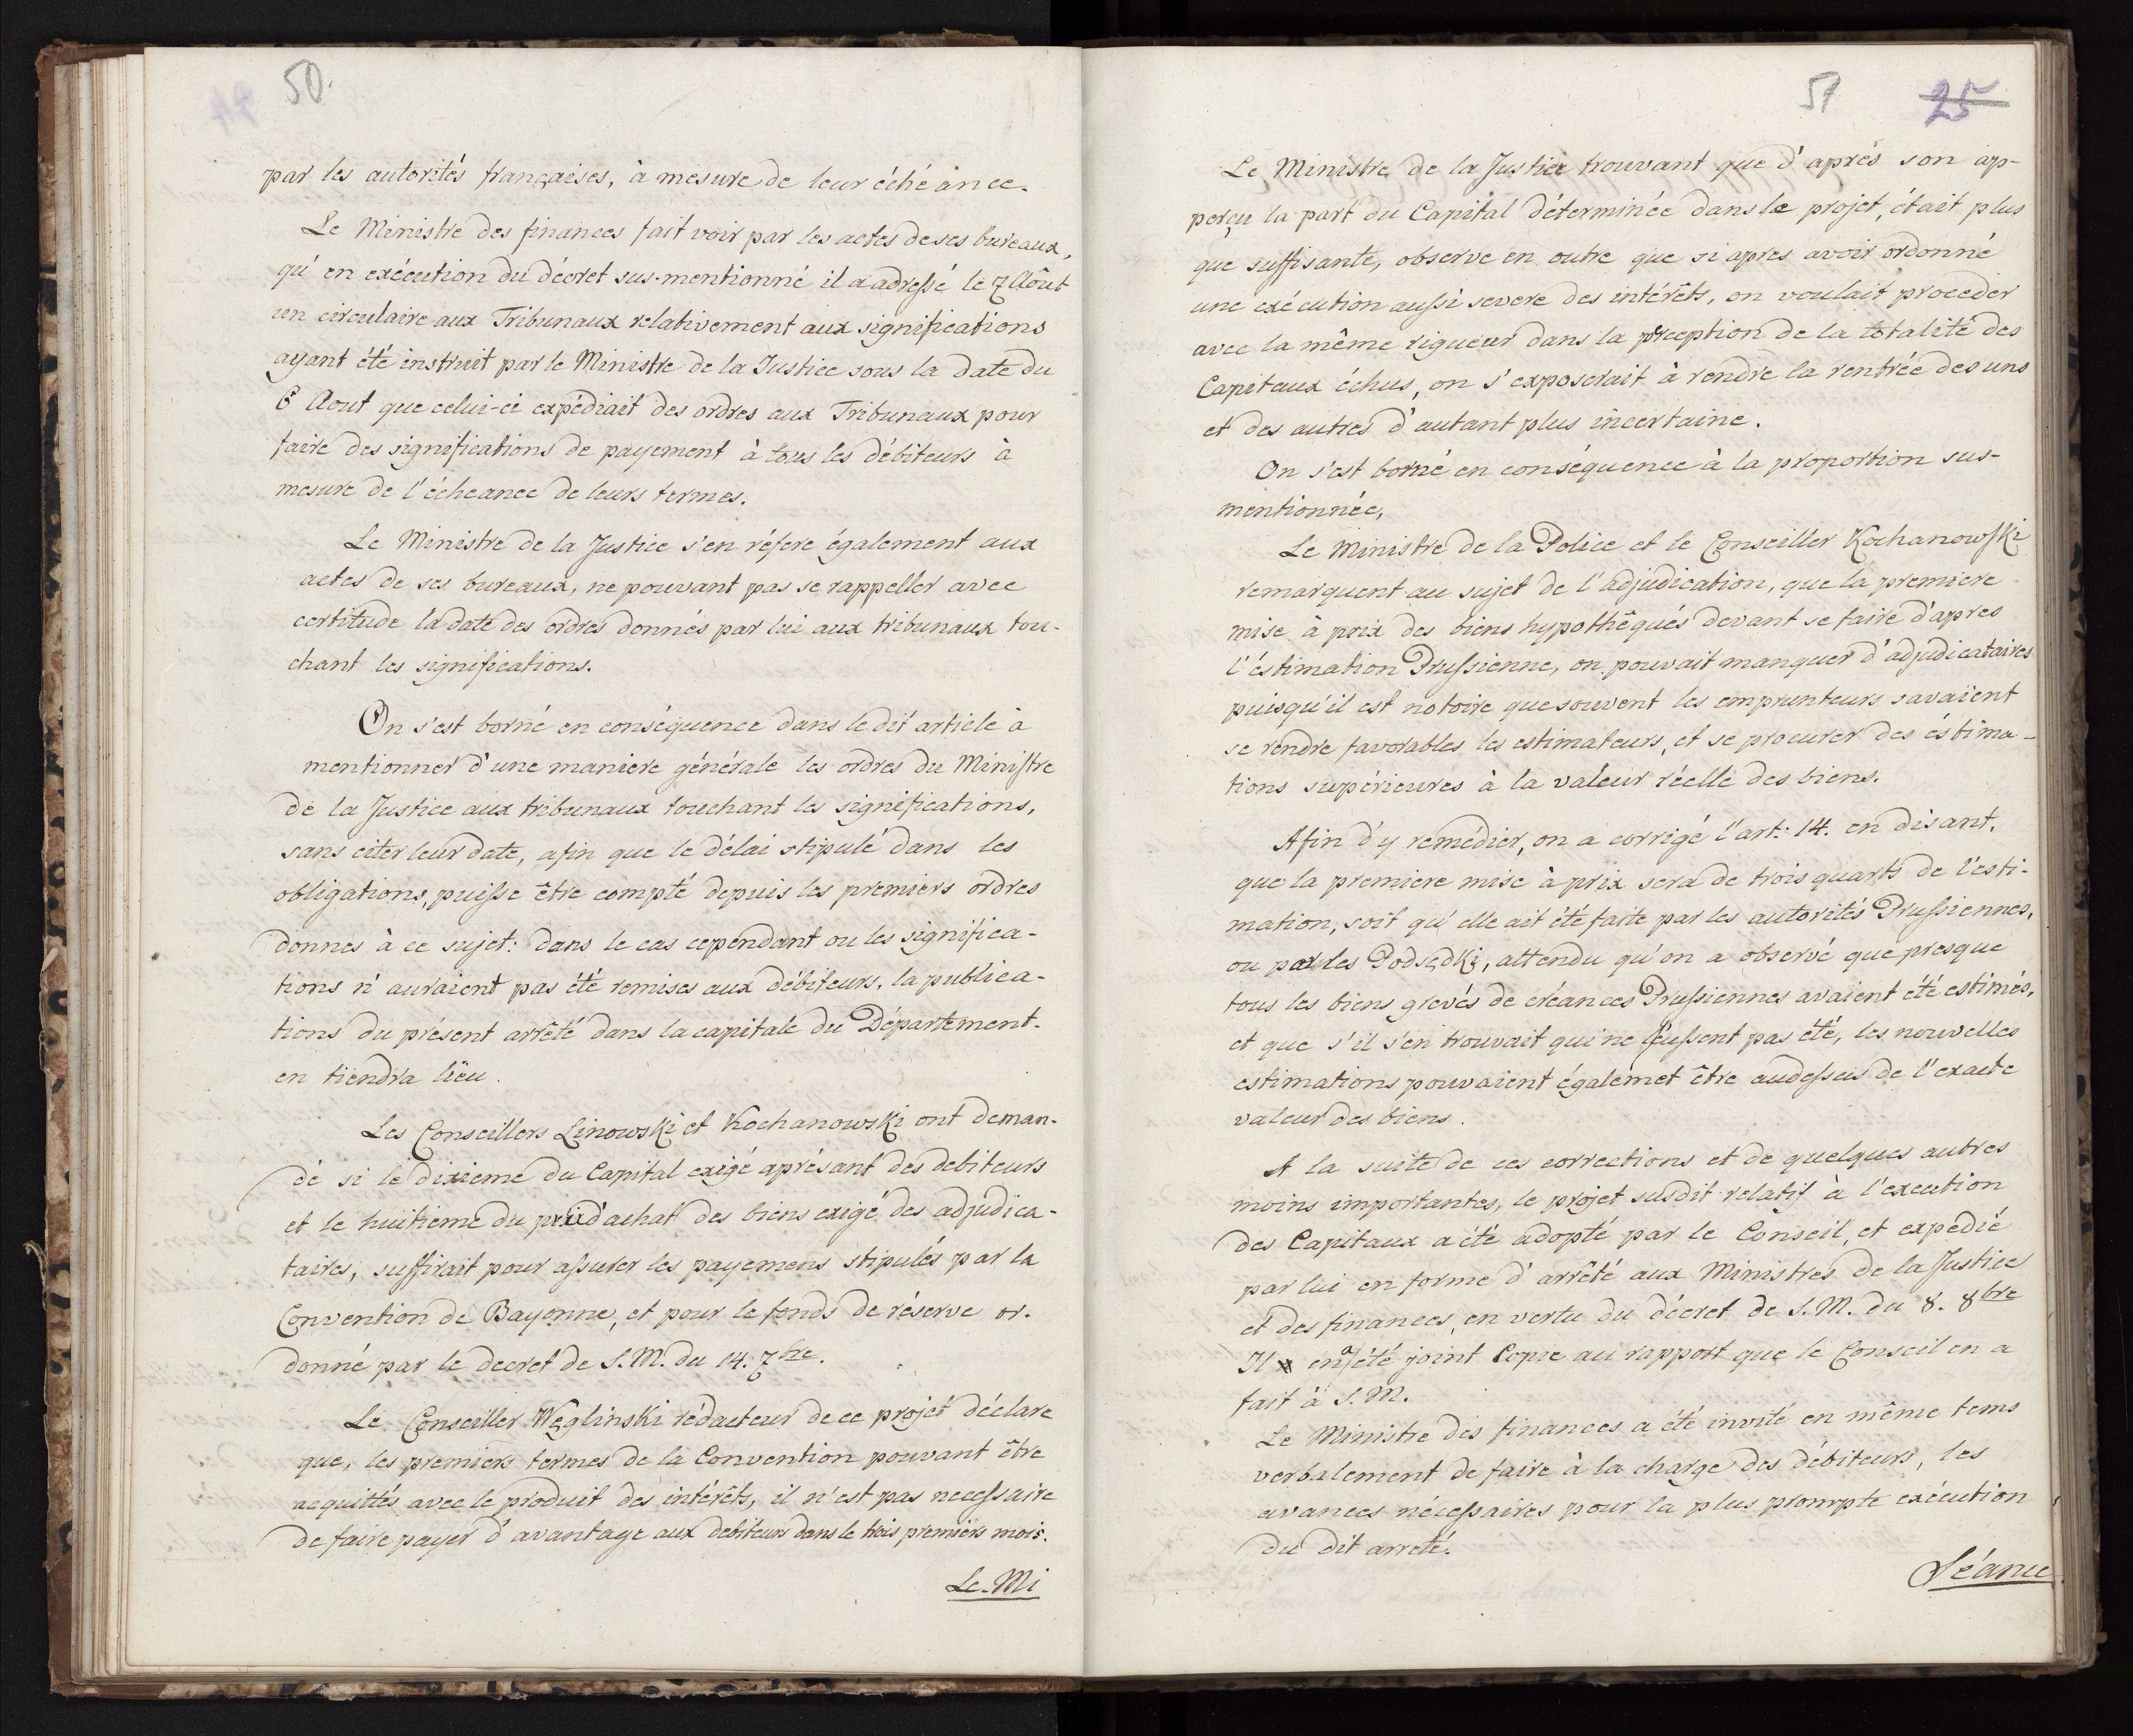 50.
par les autorités françaises, à mesure de leur échéance.
Le Ministre des finances fait voir par les actes de ses bureaux,
qu'en exécution du décret sus-mentionné il a adressé le 7 Août
un circulaire aux Tribunaux relativement aux significations
ayant été instruit par le Ministre de la Justice sous la date du
6 Aout que celui-ci expédiait des ordres aux Tribunaux pour
faire des significations de payement à tous les débiteurs à
mesure de l'écheance de leurs termes.
Le Ministre de la Justice s'en réfere également aux
actes de ses bureaux, ne pouvant pas se rappeller avec
certitude la date des ordres donnés par lui aux tribunaux tou-
chant les significations.
On s'est borné en conséquence dans le dit article à
mentionner d'une maniere générale les ordres du Ministre
de la Justice aux tribunaux touchant les significations,
sans citer leur date, afin que le délai stipulé dans les
obligations, puisse être compté depuis les premiers ordres
donnés à ce sujet: dans le cas cependant ou les significa-
tions n'auraient pas été remises aux débiteurs, la publica-
tions du présent arrêté dans la capitale du Département.
en tiendra lieu.
Les Conseillers Linowski et Kochanowski ont deman-
dé si le dixieme du Capital exigé aprésant des debiteurs
et le huitieme du prix d'achat des biens exigé des adjudica-
taires, suffirait pour assurer les payemens stipulés par la
Convention de Bayonne, et pour le fonds de réserve or-
donné par le decret de S.M. du 14. 7bre.
Le Conseiller Węglinski rédacteur de ce projet déclare
que, les premiers termes de la Convention pouvant être
acquittés avec le produit des intérêts, il n'est pas necessaire
de faire payer d'avantage aux debiteurs dans le trois premiers mois.
Le Mi
51 25
Le Ministre de la Justice trouvant que d'aprés son ap-
perçu la part du Capital déterminée dans le projet, était plus
que suffisante, observe en outre que si apres avoir ordonné
une exécution aussi severe des intérêts, on voulait proceder
avec la même rigueur dans la perception de la totalité des
Capitaux échus, on s'exposerait à rendre la rentrée des uns
et des autres d'autant plus incertaine.
On s'est borné en conséquence à la proportion sus-
mentionnée,
Le Ministre de la Police et le Conseiller Kochanowski
remarquent au sujet de l'adjudication, que la premiere
mise à prix des biens hypothêqués devant se faire d'apres
l'éstimation Prussienne, on pouvait manquer d'adjudicataires
puisqu'il est notoire que souvent les emprunteurs savaient
se rendre favorables les estimateurs, et se procurer des éstima-
tions supérieures à la valeur réelle des biens.
Afin d'y remédier, on a corrigé l'art: 14. en disant,
que la premiere mise à prix sera de trois quarts de l'esti-
mation, soit qu'elle ait été faite par les autorités Prussiennes,
ou par les Podsędki, attendu qu'on a observé que presque
tous les biens grevés de créances Prussiennes avaient été estimés,
et que s'il s'en trouvait qui ne l'eussent pas été, les nouvelles
estimations pouvaient égalemet être audessus de l'exacte
valeur des biens.
A la suite de ces corrections et de quelques autres
moins importantes, le projet susdit relatif à l'execution
des Capitaux a été adopté par le Conseil, et expedié
par lui en forme d'arrêté aux Ministres de la Justice
et des finances, en vertu du décret de S.M. du 8. 8bre
Il en a été joint Copie au rapport que le Conseil en a
fait à S.M.
Le Ministre des finances a été invité en même tems
verbalement de faire à la charge des débiteurs, les
avances nécessaires pour la plus prompte exécution
du dit arreté.
Séance